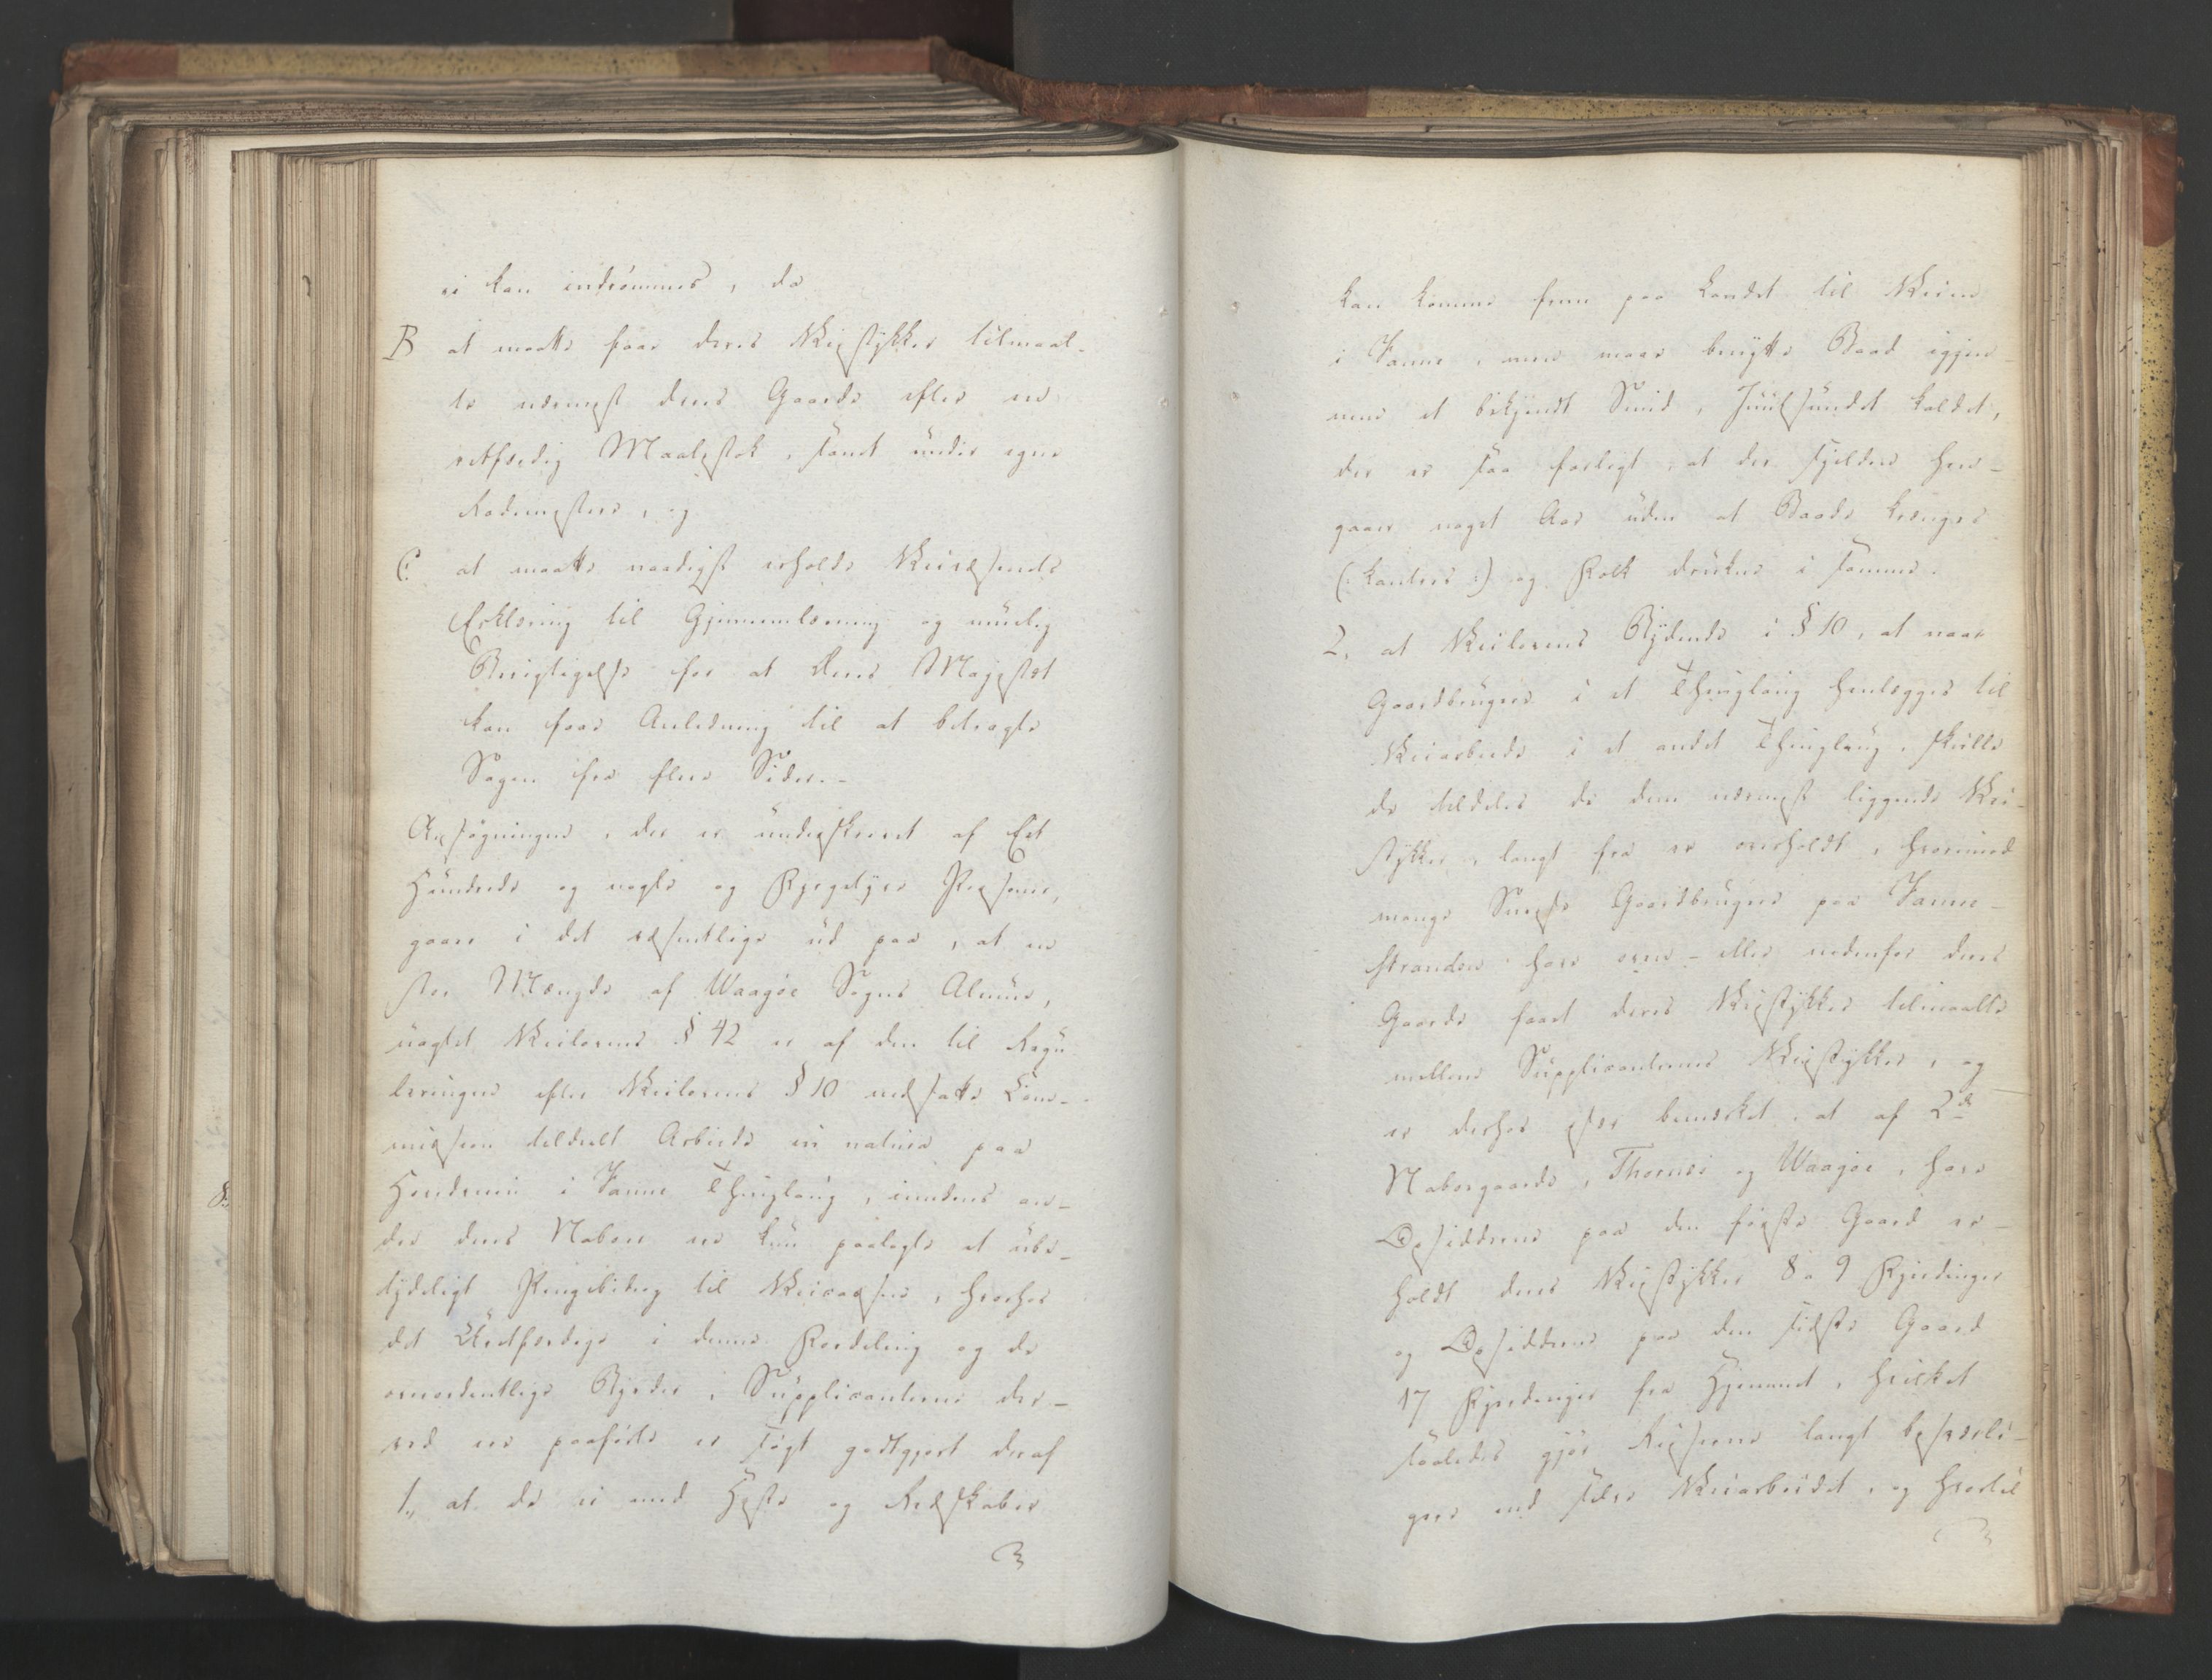 ei kan indrømmes, da
B at maatte faae deres Veistykker tilmaal-
te nærmest deres Gaarde efter en
retfærdig Maalestok, samt under egne
Rodemestere, og
C. at maatte naadigst erholde Veivæsenets
Erklæring til Gjennemlæsning og muelig
Berigtigelse for at Deres Majestæt
kan faae Anledning til at betragte
Sagen fra flere Sider.-
Ansøgningen, der er underskrevet af Eet
Hundrede og nogle og Fyrgetyve Personer,
gaaer i det væsentlige ud paa, at en
stor Mængde af Waagøe Sogns Almue,
uagtet Veilovens § 42 er af den til Regu
leringen efter Veilovens § 10 nedsatte Com-
mission tildeelt Arbeide in natura paa
Hovedveien i Fanne Thinglaug, imedens an-
dre deres Naboer ere kun paalagte et ube-
tydeligt Pengebidrag til Veivæsenet, hvorhos
det Uretfærdige i denne Fordeling og de
overordentlige Byrder, Supplicanterne der-
ved ere paaførte er søgt godtgjort deraf
1., at de ei med Heste og Redskaber
kan komme frem paa Landet til Veien
i Fanne, men maae benytte Baad igjen-
nem et bekjendt Sund, Juulsundet kaldet,
der er saa farligt, at der sjelden hen-
gaaer noget Aar uden at Baade kænges
(: kantres :) og Folk drukne i samme.
2, at Veilovens Bydende i § 10, at naar
Gaardbrugere i et Thinglaug henlægges til
Veiarbeide i et andet Thinglaug, skulle
de tildeles de dem nærmest liggende Vei-
stykker, langt fra er overholdt, hvorimod
mange Gaardbrugere paa Fanne-
stranden have oven- eller nedenfor deres
Gaarde faaet deres Veistykker tilmaalte
mellem Supplicanternes Veistykker, og
er derhos især bemærket, at af 2de
Naboegaarde, Thornæs og Waagøe, have
Opsidderne paa den første Gaard er-
holdt deres Veistykker 8 a 9 Fjerdinger
og Opsidderne paa den sidste Gaard
17 Fjerdinger fra Hjemmet, hvilket
saaledes gjør Reiserne langt besværli-
gere end selve Veiarbeidet, og hvortil